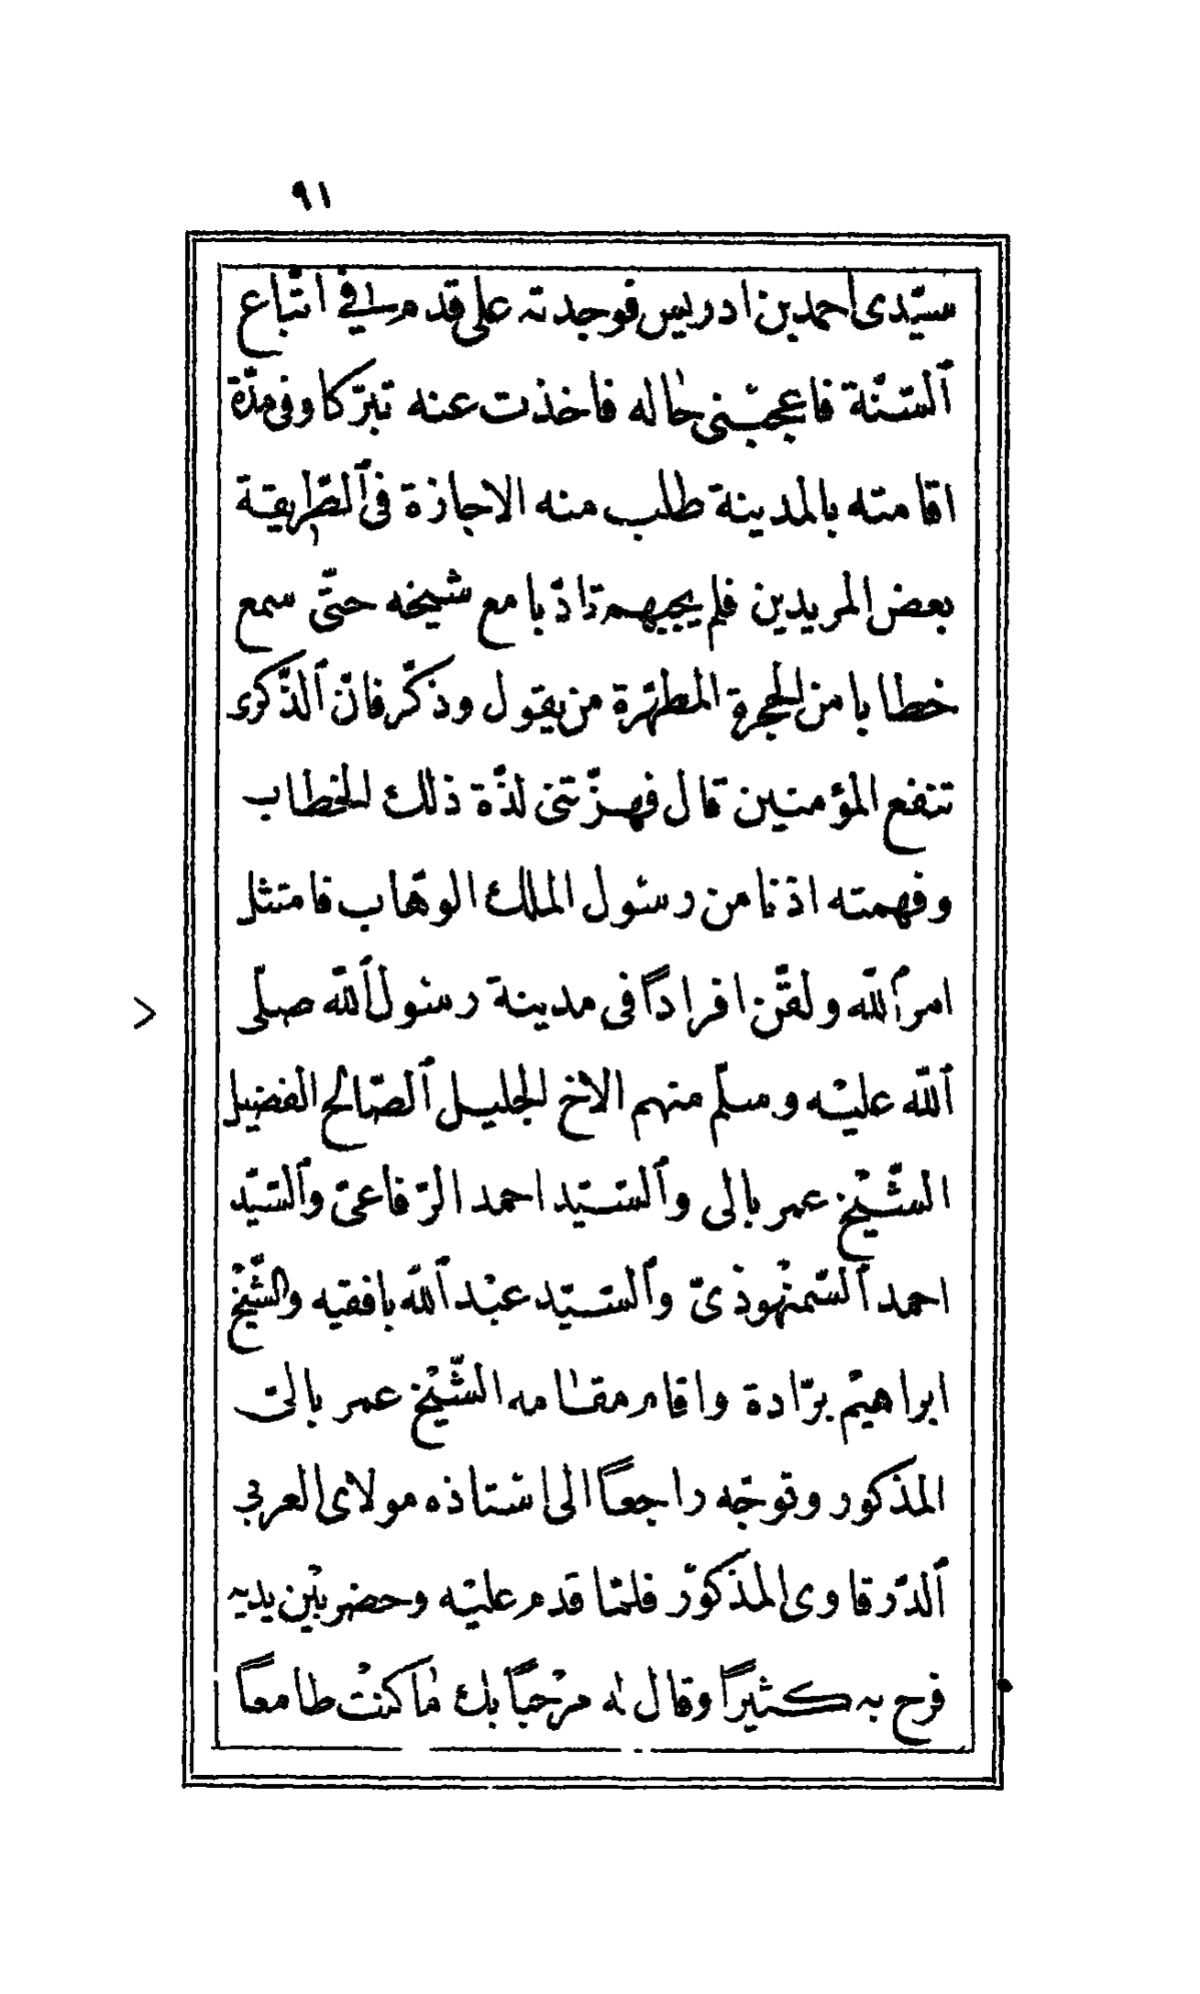 ٩١
سيّدى احمد بن ادريس فوجدته على قدم راسخ في اتّباع
ٱلسّنّة فاعجبنى حاله فاخذت عنه تبرّكا وفى مدّة
اقامته بالمدينة طلب منه الاجازة فى ٱلطّريقة
بعض المريدين فلم يجبهم تادّبا مع شيخه حتّى سمع
خطابا من الحجرة المطهّرة من يقول وذكّر فانّ ٱلذّكرى
تنفع المؤمنين قال فهزّتنى لذّة ذلك الخطاب
وفهمته اذنا من رسول الملك الوهّاب فامتثل
امر ٱللّه ولقّن افرادًا فى مدينة رسول ٱللّه صلّى
ٱللّه عليْه وسلّم منهم الاخ الجليل ٱلصّالح الفضيل
الشّيْخ عمر بالى وٱلسّيّد احمد الرّفاعىّ وٱلسّيّد
احمد ٱلسّمنْهوذىّ وٱلسّيّد عبْد ٱللّه بافقيه والشّيْخ
ابراهيْم برّادة واقام مقامه الشّيْخ عمر بالىّ
المذكور وتوجّه راجعًا الى استاذه مولاى العربى
ٱلدّرقاوى المذكوْر فلمّا قدم عليْه وحضر بيْن يديه
فرح به كثيرًا وقال له مرْحبًا بك ما كنْت طامعًا